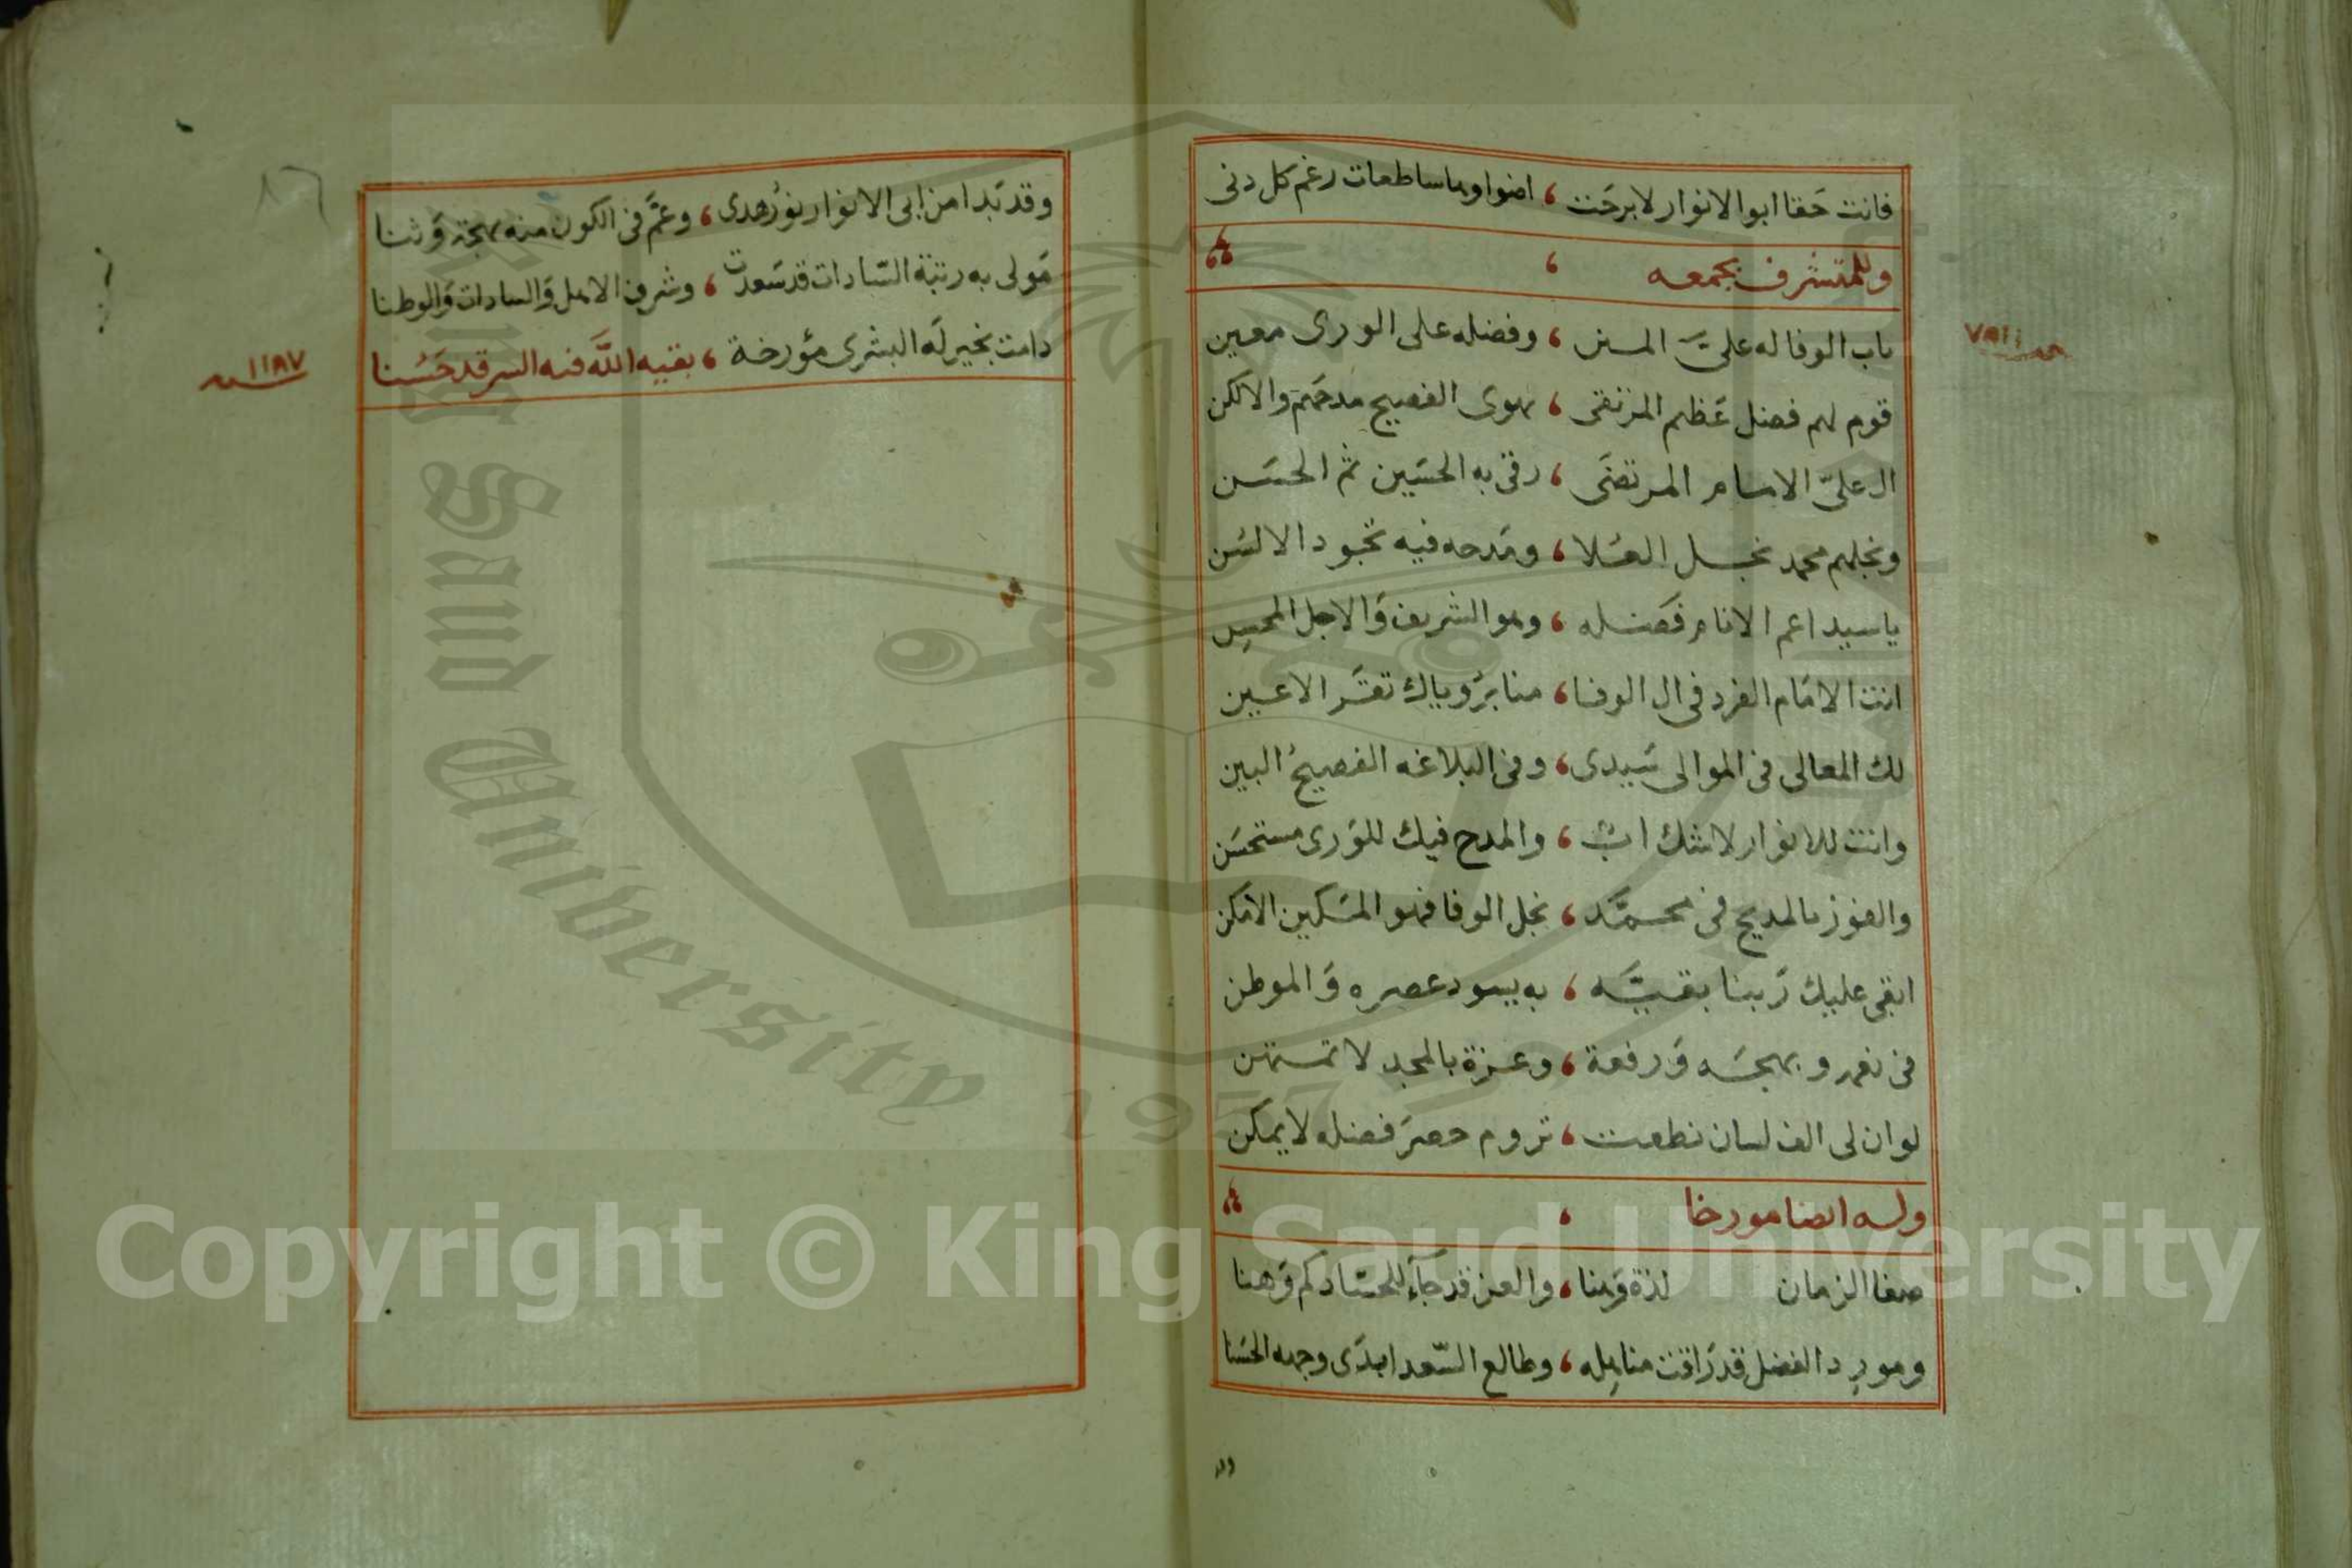 فانت حقا ابو الانوار لا برحت ، اضواوها ساطعات رغم كل دنى
وللمتشرف بجمعه
باب الوفا له علىّ المنن ، وفضله على الورى معين
قوم لهم فضل عظيم المرتقى ، يهوى الفصيح مدحهم والالكن
ال علىّ الامام المرتضى ، رقى به الحسين ثم الحسن
ونجلهم محمد نجل العلا ، ومدحه فيه تجود الالسن
ياسيدا عم الانام فضله ، وهو الشريف والاجل المحسن
انت الامام الفرد فى ال الوفا ، منابر وياك تقر الاعين
لك المعالى فى الموالى سيدى ، وفى البلاغه الفصيح البين
وانت للانوار لا شك اب ، والمدح فيك للورى مستحسن
والفوز بالمديح فى محمد ، نجل الوفا فهو المكين الامكن
ابقى عليك ربنا بقيه ، به يسود عصره والموطن
فى نعم وبهجه ورفعة ، وعزة بالمجد لا تمتهن
لو ان لى الف لسان نطقت ، تروم حصر فضله لا يمكن
وله ايضا مورخا
صفا الزمان لذة وهنا ، والعز قد جآء للحساد كم وهنا
ومورد الفضل قد راقت مناهله ، وطالع السّعد ابدى وجهه الحسنا
وقد بدا من ابى الانوار نور هدى ، وعمّ فى الكون منه بهجة وثنا
مولى به رتبة السّادات قد سعدت ، وشرف الاهل والسادات والوطنا
دامت بخير له البشرى مؤرخة ، بقيه اللّه فيه السر قد حسنا
سنه ١١٨٧
Copyright © King Saud University
King Saud University
1957